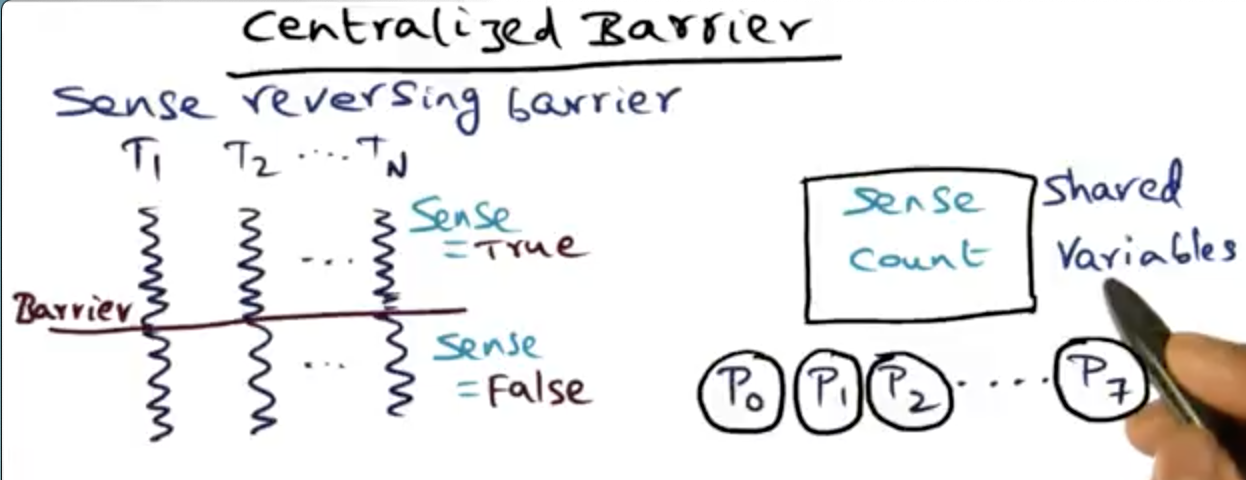 Centralized Barrier
Sense reversing barrier
T1 T2 .... TN
Sense
= True
...
Barrier
Sense
= False
...
Sense
Count
Shared
Variables
P0 P1 P2 .... P7